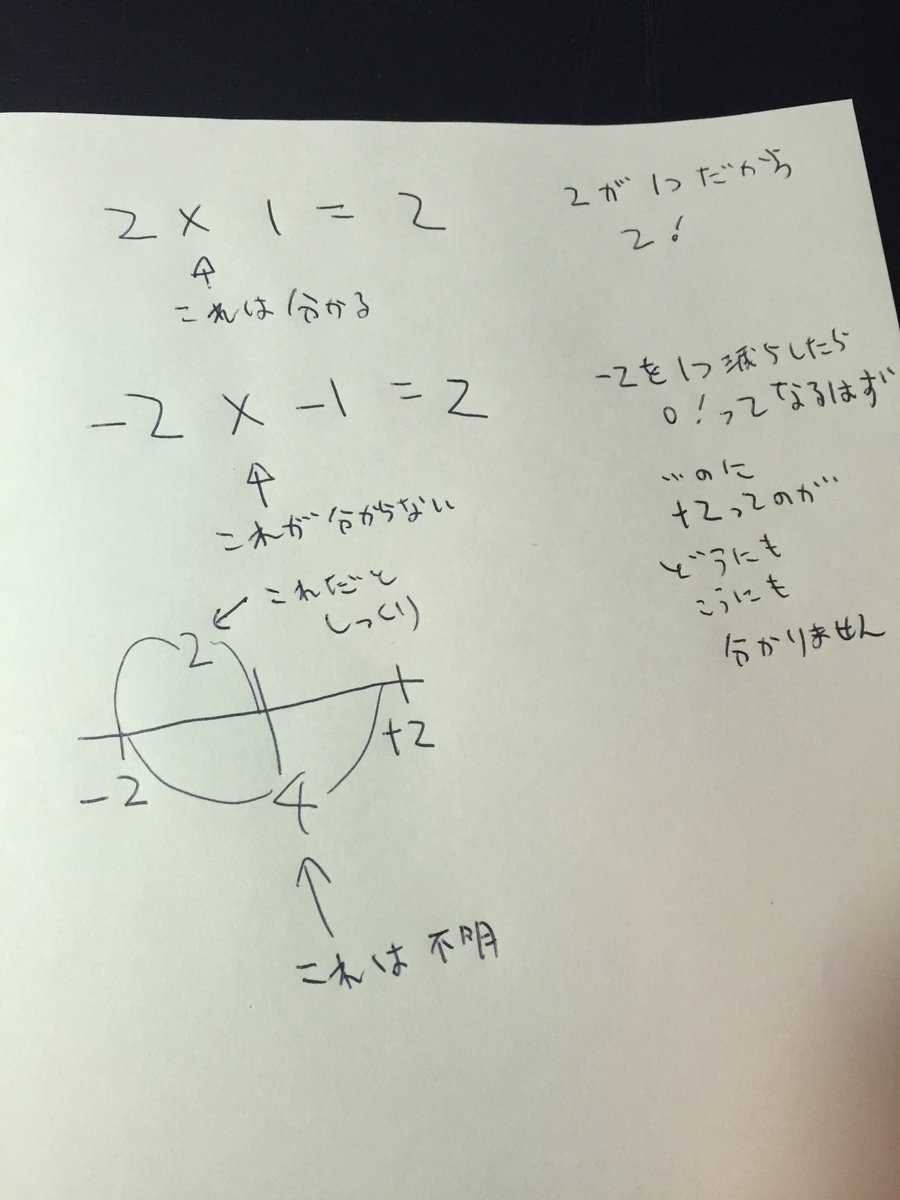 2 × 1 = 2
これは分かる
2が1つだから
2!
-2 × -1 = 2
これが分からない
-2を1つ減らしたら
0!ってなるはず
…のに
+2ってのが…
どうにも
こうにも
分かりません
これだと
しっくり
2
-2
+2
4
これは不明